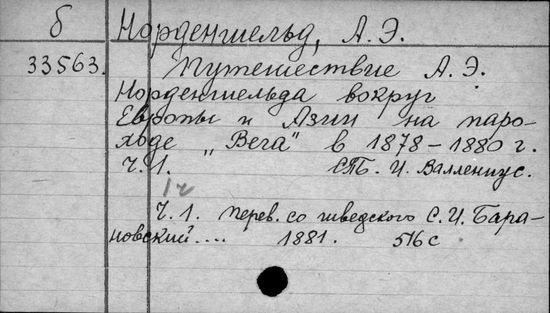 б Норденшельд, А. Э.
33563. Путешествие А. Э.
Норденшельда вокруг
Европы и Азии на паро-
ходе „Вега" в 1878-1880 г.
Ч. 1. СПБ. И. Валлениус.
1ч
Ч. 1. перев. со шведского С. И. Бара-
новский.... 1881. 516 с